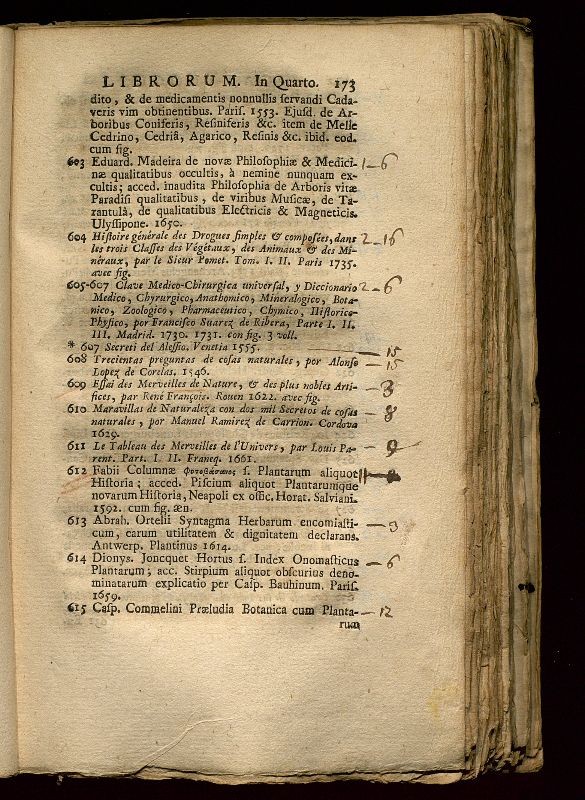 LIBRORUM. In Quarto. 173
dito, & de medicamentis nonnullis ſervandi Cada-
veris vim obtinentibus. Pariſ. 1553. Ejuſd. de Ar-
boribus Coniferis, Reſiniferis &c. item de Melle
Cedrino, Cedriâ, Agarico, Reſinis &c. ibid. eod.
cum fig.
603 Eduard. Madeira de novæ Philoſophiæ & Medici- 1–6
næ qualitatibus occultis, à nemine nunquam ex-
cultis; acced. inaudita Philoſophia de Arboris vitæ
Paradiſi qualitatibus, de viribus Muſicæ, de Ta-
rantulâ, de qualitatibus Electricis & Magneticis.
Ulyſſipone. 1650.
604 Hiſtoire générale des Drogues ſimples & compoſées, dans 2–16
les trois Claſſes des Végétaux, des Animaux & des Mi-
néraux, par le Sieur Pomet. Tom. I. II. Paris 1735.
avec fig.
605-607 Clave Medico-Chirurgica univerſal, y Diccionario 2–6
Medico, Chyrurgico, Anathomico, Mineralogico, Bota-
nico, Zoologico, Pharmaceutico, Chymico, Hiſtorico-
Phyſico, por Franciſco Suarez de Ribera, Parte I. II.
III. Madrid. 1730. 1731. con fig. 3 voll.
* 607 Secreti del Aleſſio. Venetia 1555. — 15
608 Trecientas preguntas de coſas naturales, por Alonſo — 15
Lopez de Corelas. 1546.
609 Eſſai des Merveilles de Nature, & des plus nobles Arti- — 3
fices, par René François. Rouen 1622. avec fig.
610 Maravillas de Naturaleza con dos mil Secretos de coſas — 8
naturales, por Manuel Ramirez de Carrion. Cordova
1629.
611 Le Tableau des Merveilles de l'Univers, par Louis Pa- — 9
rent. Part. I. II. Franeq. 1661.
612 Fabii Columnæ φυτοβάσανος ſ. Plantarum aliquot
Hiſtoria; acced. Piſcium aliquot Plantarumque
novarum Hiſtoria, Neapoli ex offic. Horat. Salviani.
1592. cum fig. æn.
613 Abrah. Ortelii Syntagma Herbarum encomiaſti- — 3
cum, earum utilitatem & dignitatem declarans.
Antwerp. Plantinus 1614.
614 Dionys. Joncquet Hortus ſ. Index Onomaſticus — 6
Plantarum; acc. Stirpium aliquot obſcurius deno-
minatarum explicatio per Caſp. Bauhinum. Pariſ.
1659.
615 Caſp. Commelini Præludia Botanica cum Planta- — 12
rum